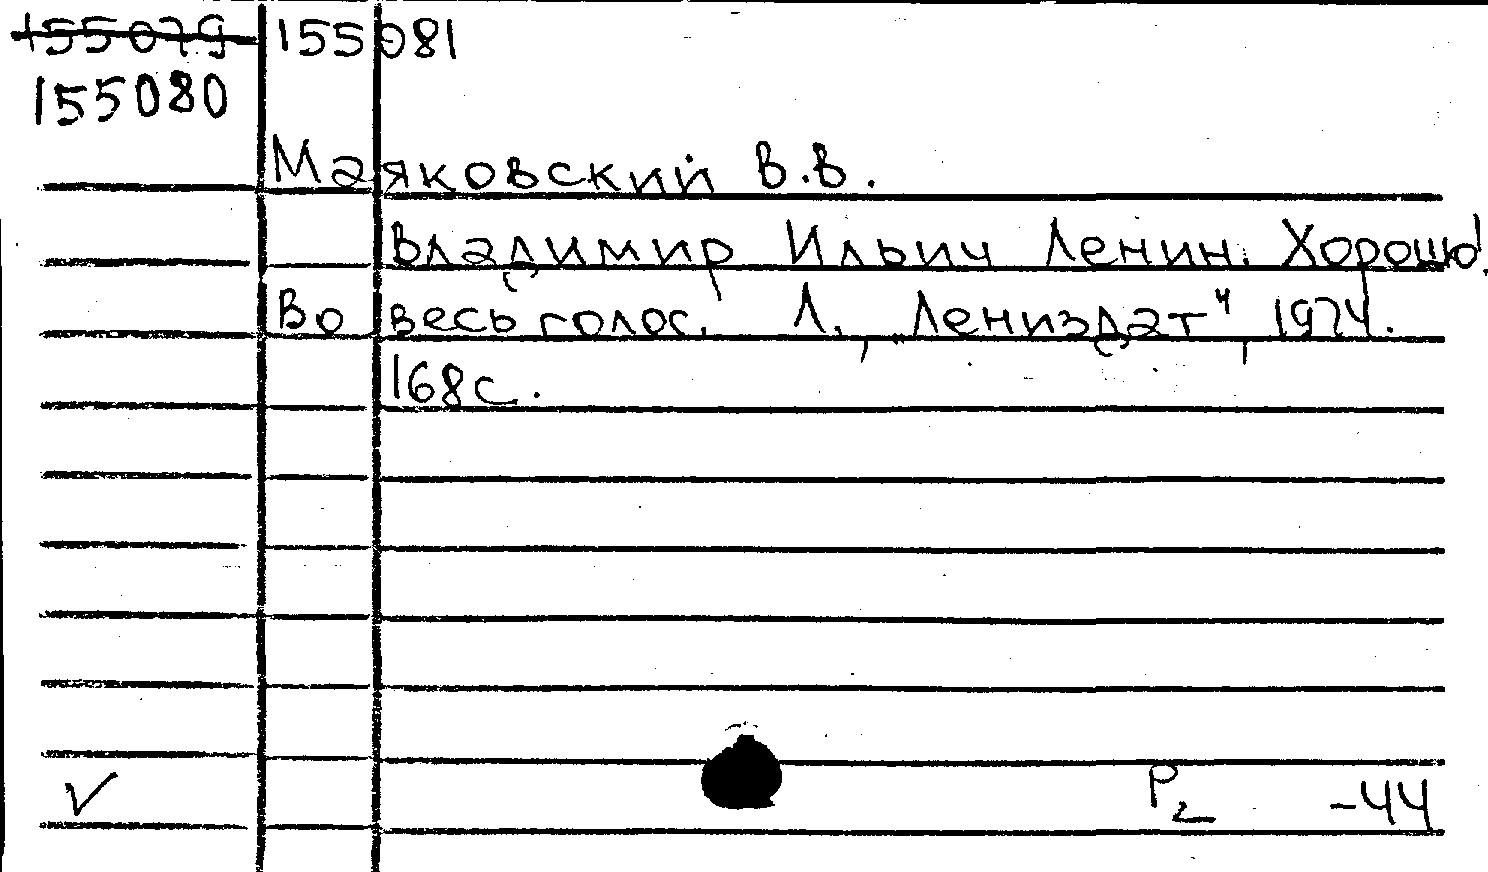 155079 155081
155080
Маяковский В.В.
Владимир Ильич Ленин. Хорошо!
Во весь голос. Л., „Лениздат“, 1974.
168с.
✓ Р2 -44